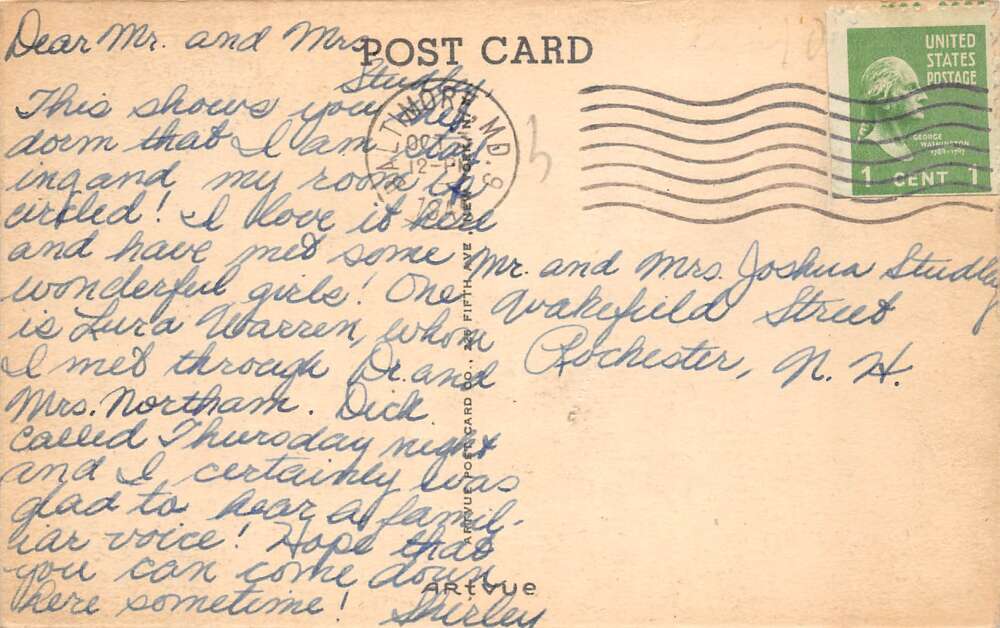 Dear Mr. and Mrs.
Studley,
This shows you the
dorm that I am stay-
ing and my room is
circled! I love it here
and have met some
wonderful girls! One
is Lura Warren, whom
I met through Dr. and
Mrs. Northam. Dick
called Thursday night
and I certainly was
glad to hear a famil-
iar voice! Hope that
you can come down
here sometime! Shirley
POST CARD
BALTIMORE, MD.
OCT
12-PM
UNITED
STATES
POSTAGE
GEORGE
WASHINGTON
1789-1797
1 CENT 1
Mr. and Mrs. Joshua Studley
Wakefield Street
Rochester, N. H.
ARTVUE POST CARD CO., 225 FIFTH AVE., NEW YORK, N.
ARTVUE